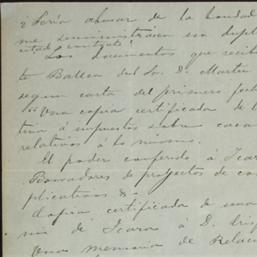 ¿Sería abusar de la bondad
me suministrasen esa dupli
citada
Los documentos que recibi
to Ballen del Sor. D. Martin
segun carta del primero fecha
"Una copia certificada de l
tria é impuestos sobre caca
relativos á lo mismo.
El poder conferido á Icaza
Borradores de proyectos de co
plicativas &a
Copia certificada de una
nio de Icaza á D. Cris
Una memoria de Relac